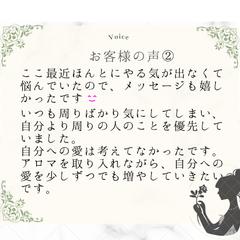 Voice
お客様の声②
ここ最近ほんとにやる気が出なくて
悩んでいたので、メッセージも嬉し
かったです
いつも周りばかり気にしてしまい、
自分より周りの人のことを優先して
いました。
自分への愛は考えてなかったです。
アロマを取り入れながら、自分への
愛を少しずつでも増やしていきたい
です。